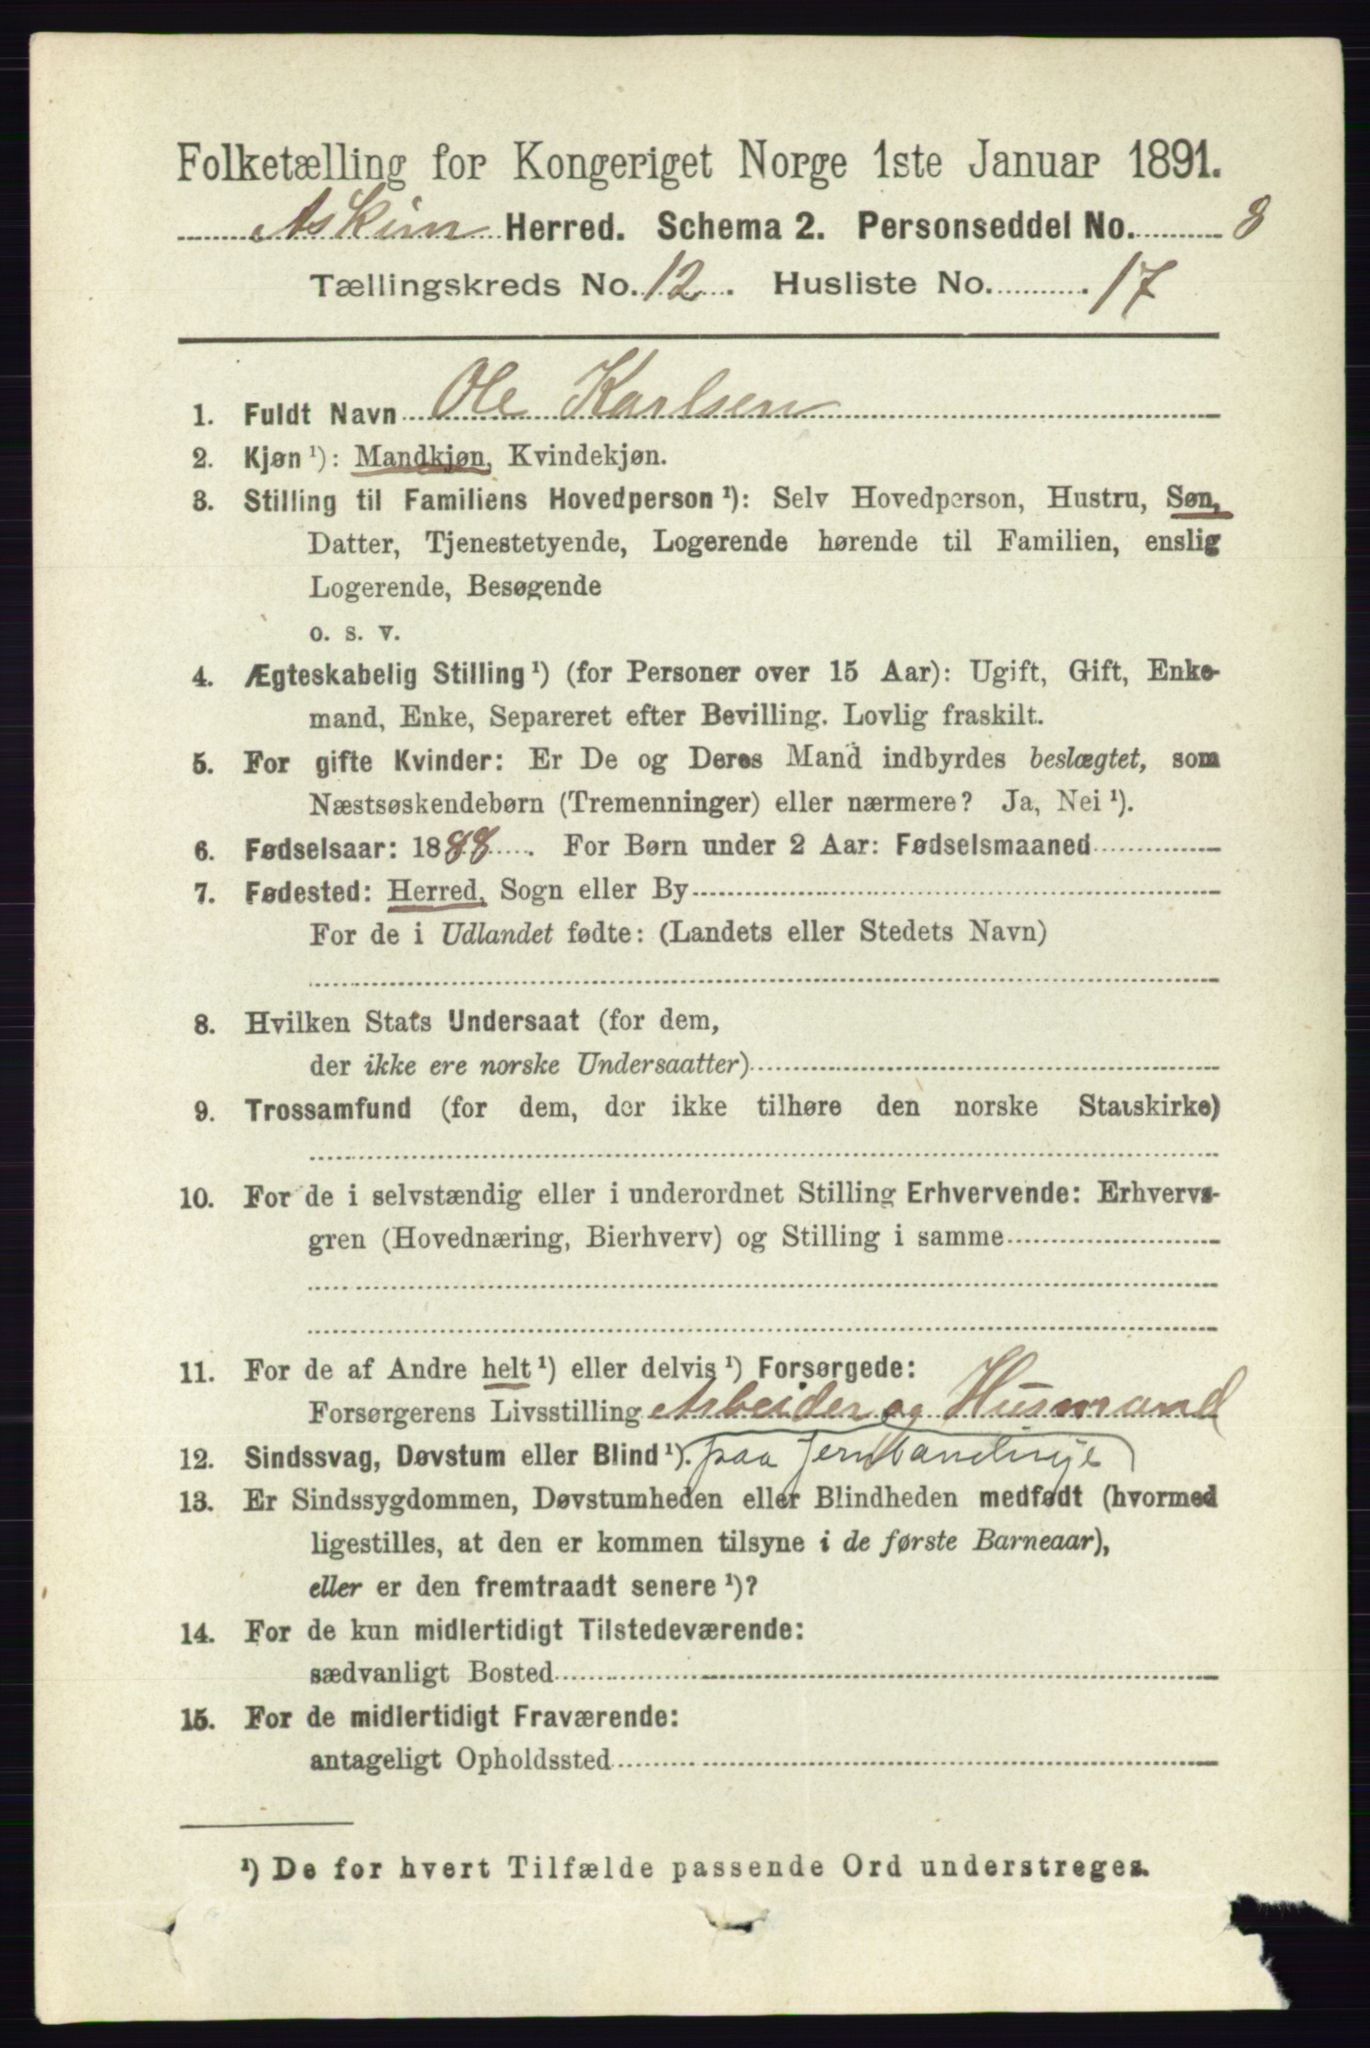 Folketælling for Kongeriget Norge 1ste Januar 1891.
Askim Herred. Schema 2. Personseddel No. 8
Tællingskreds No. 12. Husliste No. 17.
1. Fuldt Navn Ole Karlsen
2. Kjøn ¹): Mandkjøn, Kvindekjøn.
3. Stilling til Familiens Hovedperson ¹): Selv Hovedperson, Hustru, Søn,
Datter, Tjenestetyende, Logerende hørende til Familien, enslig
Logerende, Besøgende
o. s. v.
4. Ægteskabelig Stilling ¹) (for Personer over 15 Aar): Ugift, Gift, Enke-
mand, Enke, Separeret efter Bevilling. Lovlig fraskilt.
5. For gifte Kvinder: Er De og Deres Mand indbyrdes beslægtet, som
Næstsøskendebørn (Tremenninger) eller nærmere? Ja, Nei ¹).
6. Fødselsaar: 1888. For Børn under 2 Aar: Fødselsmaaned
7. Fødested: Herred, Sogn eller By
For de i Udlandet fødte: (Landets eller Stedets Navn)
8. Hvilken Stats Undersaat (for dem,
der ikke ere norske Undersaatter)
9. Trossamfund (for dem, der ikke tilhøre den norske Statskirke)
10. For de i selvstændig eller i underordnet Stilling Erhvervende: Erhvervs-
gren (Hovednæring, Bierhverv) og Stilling i samme
11. For de af Andre helt ¹) eller delvis ¹) Forsørgede:
Forsørgerens Livsstilling Arbeider og Husmand
12. Sindssvag, Døvstum eller Blind ¹). paa Jernbanelinje
13. Er Sindssygdommen, Døvstumheden eller Blindheden medfødt (hvormed
ligestilles, at den er kommen tilsyne i de første Barneaar),
eller er den fremtraadt senere ¹)?
14. For de kun midlertidigt Tilstedeværende:
sædvanligt Bosted
15. For de midlertidigt Fraværende:
antageligt Opholdssted
¹) De for hvert Tilfælde passende Ord understreges.